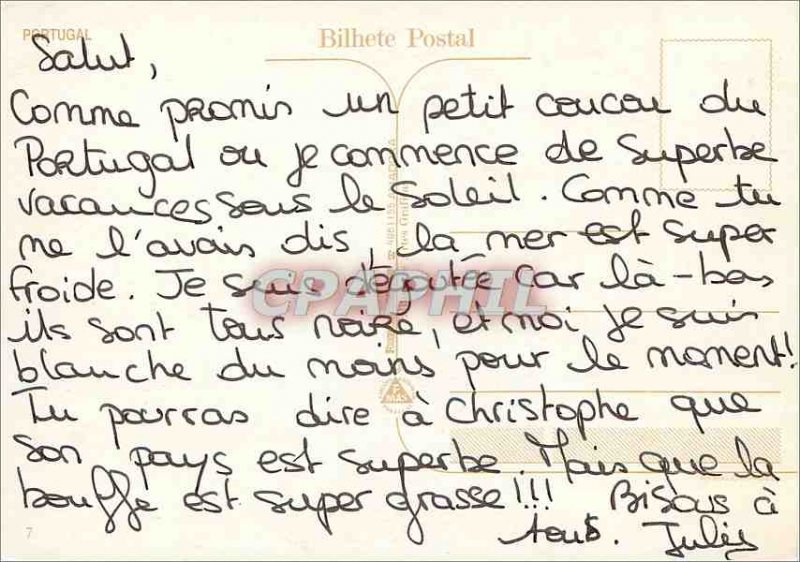 PORTUGAL
Bilhete Postal
Salut,
Comme promis un petit coucou du
Portugal ou je commence de superbe
vacances sous le soleil. Comme tu
me l'avais dis, la mer est super
froide. Je suis dégoutée car là-bas
ils sont tous noirs, et moi je suis
blanche du moins pour le moment!
Tu pourras dire à Christophe que
son pays est superbe. Mais que la
bouffe est super grasse!!! Bisous à
tous. Julie
CPAPHIL
7